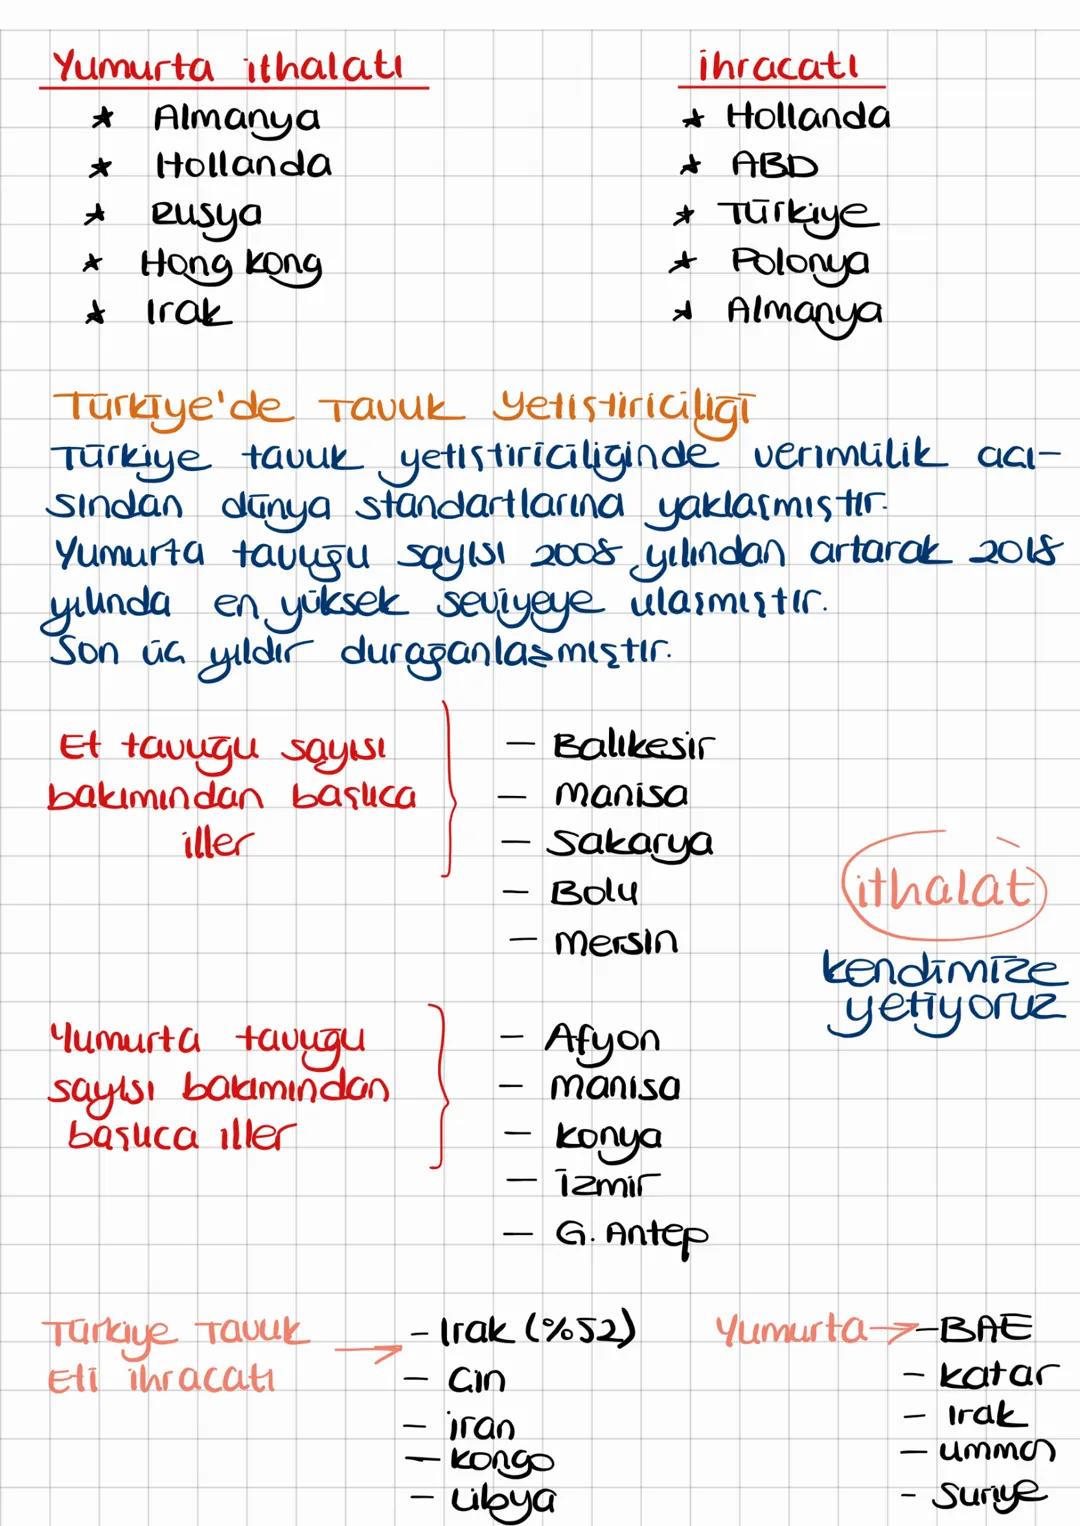 Yumurta ithalatı
* Almanya
* Hollanda
* Rusya
* Hong kong
* Irak
ihracatı
* Hollanda
* ABD
* Türkiye
* Polonya
* Almanya
Türkiye'de Tavuk Yetiştiriciliği
Türkiye tavuk yetiştiriciliğinde verimlilik açı-
sından dünya standartlarına yaklaşmıştır.
Yumurta tavuğu sayısı 2008 yılından artarak 2018
yılında en yüksek seviyeye ulaşmıştır.
Son üç yıldır durağanlaşmıştır.
Et tavuğu sayısı
bakımından başlıca
iller
- Balıkesir
- Manisa
- Sakarya
- Bolu
- Mersin
ithalat
kendimize
yetiyoruz
Yumurta tavuğu
sayısı bakımından
başlıca iller
- Afyon
- Manisa
- Konya
- İzmir
- G. Antep
Türkiye Tavuk
Eti ihracatı
- Irak (%52)
- Çin
- İran
- Kongo
- Libya
Yumurta → - BAE
- Katar
- Irak
- umman
- Suriye